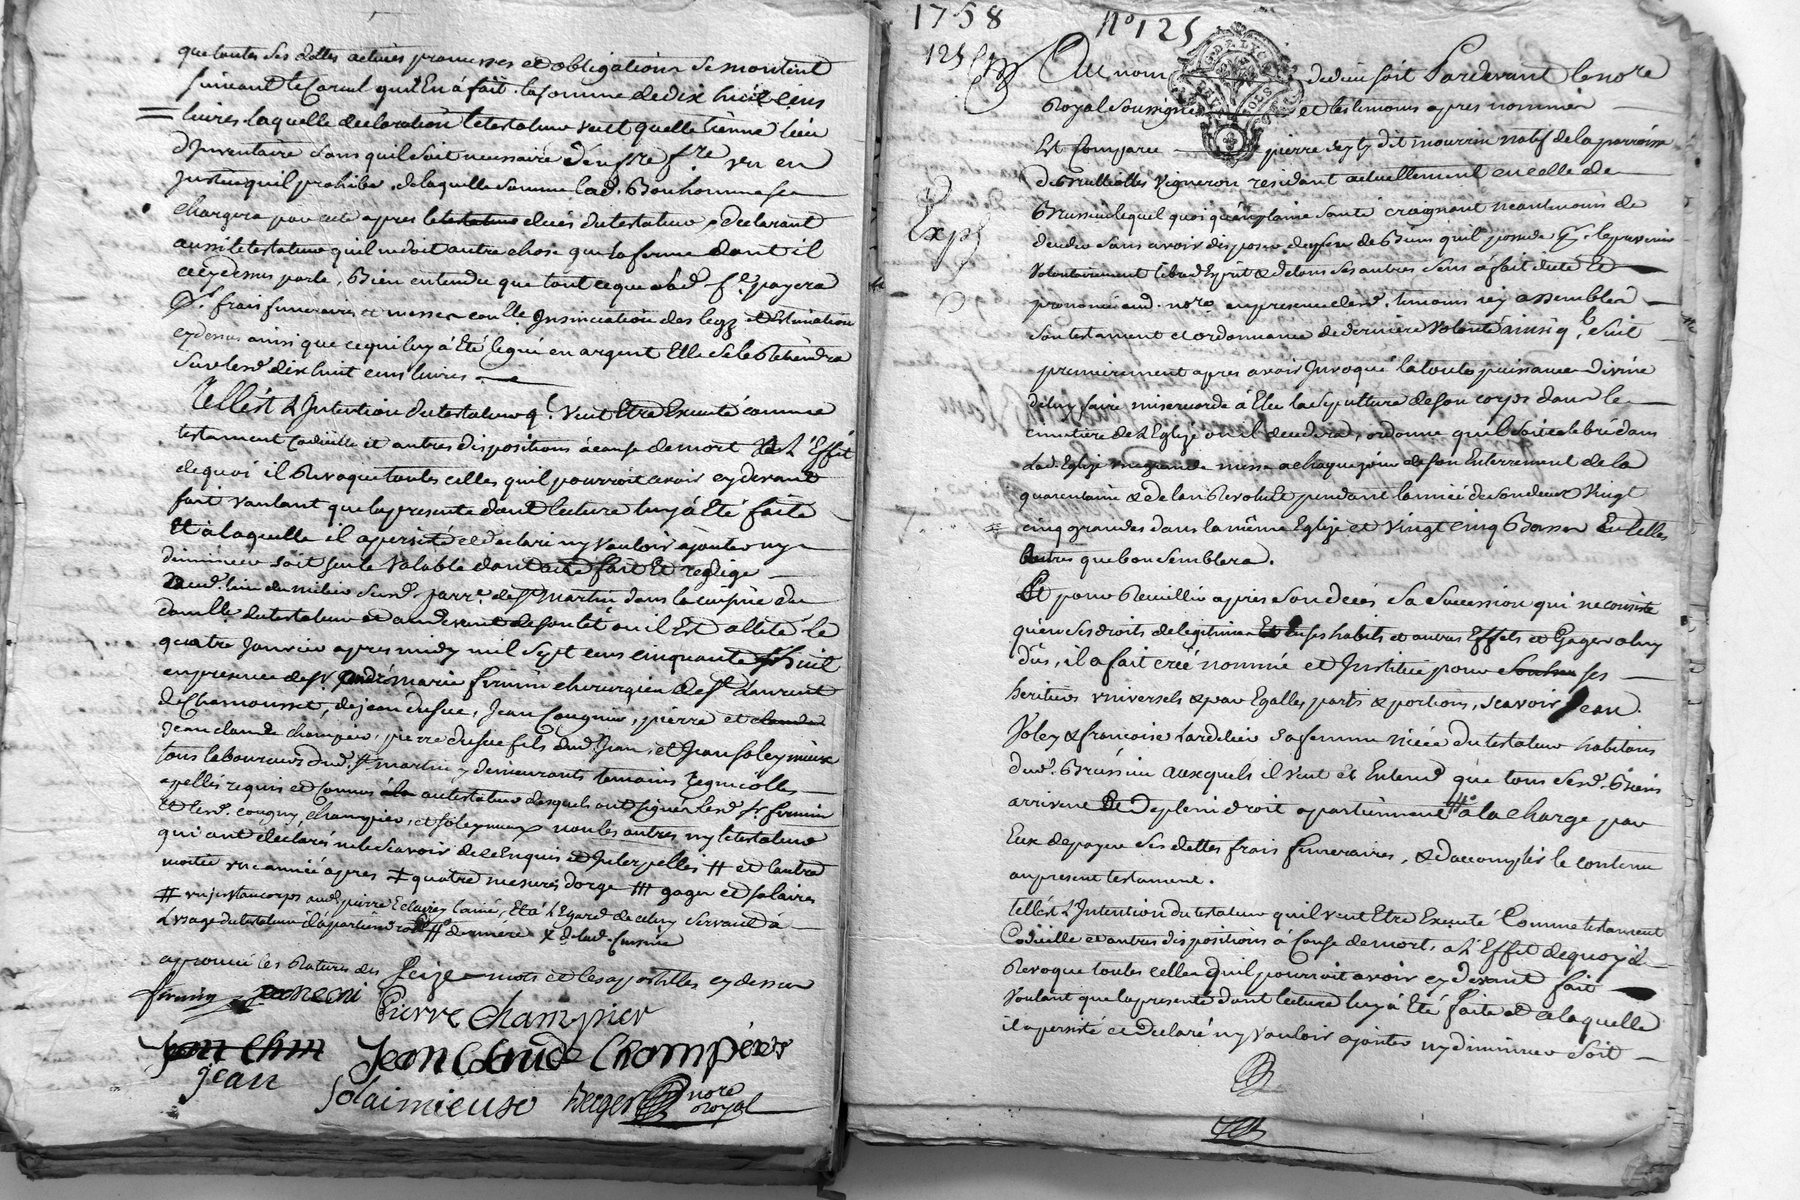 que toutes ses dettes actives promesses et obligations se montent
suivant le Calcul quil En à fait la somme de dix huit cens
livres laquelle declaration le testateur veut quelle tienne lieu
d'Inventaire sans quil soit necessaire d'en fre fre un en
justice quil prohibe, de laquelle somme lad. Bonhomme se
chargera par acte apres le testateur deces du testateur, declarant
aussi le testateur quil ne doit autre chose que la ferme dont il
a cy dessus parlé, Bien entendu que tout ce que lad. fe. payera
frais funeraires et messes Insinuation des legs et Estimation
cy dessus ainsi que ce qui luy à Eté legué en argent Elle se le Retiendra
sur lesd. dix huit cens livres.
Tell'est L'Intention du testateur ql. veut Etre Executé comme
testament Codicille et autres dispositions à cause de mort à L'Effet
de quoi il Revoque toutes celles quil pourroit avoir cy devant
fait voulant que la presente dont lecture luy à Eté faite
Et à laquelle il a persisté et declaré ny vouloir ajouter ny
diminuer soit seule valable dont acte fait Et redigé
aud. lieu du milieu susd. parre. de St martin dans la cuisine du
domlle. du testateur et au devant de son lit ou il Est allité le
quatre Janvier apres midy mil sept cens cinquante huit
en presence de sr. André marie firmin chirurgien de st. Laurent
de Chamousset, de jean dufue, Jean Cougnin, pierre et claude
Jean claude champier, pierre dufue fils dud. Jean, et Jean soleymieux
tous laboureurs dud. st martin y demeurants temoins regnicolles
apellés requis et connus à la au testateur desquels ont signer lesd. sr. firmin
Et lesd. cougny, champier, et soleymieux non les autres ny le testateur
qui ont declarés ne le scavoir de ce Enquis et Interpellés # et l'autre
moitié une année apres ≠ quatre mesures d'orge ### gages et salaires
# un justaucorps aud. pierre Et à L'Egard de celuy servant à
L'usage du testateur d'apartiendra # derniere x de lad. cuisine
aprouvé les Ratures des seize mots et les apostilles cy dessus
firmin
Pierre Champier
Jean Chm Jean Claude Champier
Jean
Solaimieuse Berger nore
Royal
1758 No 125
125
Expé
Au nom de dieu soit Pardevant le nore
Royal soussigné et les temoins apres nommés
Est Comparu pierre dit mourrin natif de la parroisse
de Brullioles vigneron residant actuellement en celle de
Brussieu lequel quoi qu'en plaine santé craignant neantmoins de
deceder sans avoir disposer des biens quil possede
volontairement libre d'Esprit & de tous ses autres sens à fait dicté Et
prononcé aud. nore. en presence desd. temoins icy assemblés
son testament et ordonnance de derniere volonté ainsi ql. suit
premierement apres avoir Invoqué la toute puissance divine
de luy faire misericorde à Elu la sepulture de son corps dans le
cimetiere de L'Eglise ou il decedera, ordonne quil soit celebré dans
lad. Eglise une grande messe a chaque jour de son Enterrement de la
quarantaine & de lan Revolu Et pendant lannée de son deces vingt
cinq grandes dans la même Eglise et vingt cinq Basses En telles
autres que bon semblera.
Et pour Recueillir apres son deces sa succession qui ne consiste
qu'en ses droits de legitimes Et En ses habits et autres Effets et Gages a luy
dûs, il a fait créé nommé et Institué pour Seuls ses
heritiers universels & par Egalles parts & portions, scavoir Jean
Joley & francoise Lardelier sa femme niéce du testateur habitans
dud. Brussieu auxquels il veut et Entend que tous sesd. Biens
arrivent Et de plein droit apartiennent à la charge par
Eux de payer ses dettes frais funeraires, & d'accomplir le contenu
au present testament.
tell'est L'Intention du testateur quil veut Etre Executé Comme testament
Codicille et autres dispositions à Cause de mort, a L'Effet de quoy il
Revoque toutes celles quil pourroit avoir cy devant fait
voulant que la presente dont lecture luy à Eté faite et a laquelle
il a persisté et declaré ny vouloir ajouter ny diminuer soit